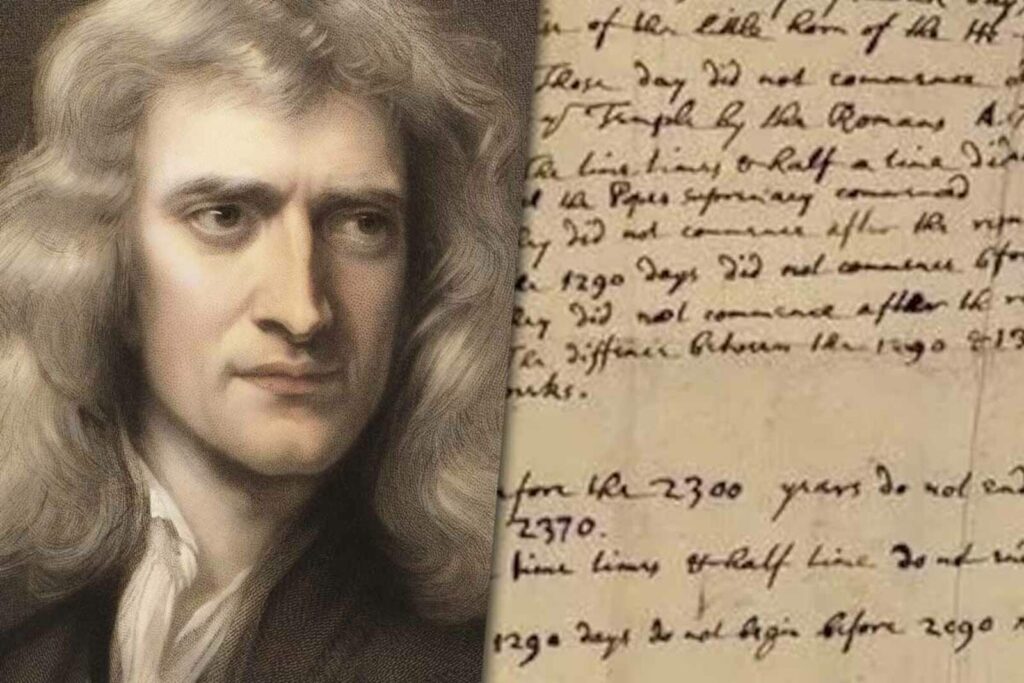 of the little horn of the He
Those day did not commence
yᵉ Temple by the Romans A.
The time times & half a time did
the Popes supremacy commenced
They did not commence after the
1290 days did not commence befor
They did not commence after the
The difference between the 1290 & 13
weeks.
fore the 2300 years do not end
2370.
time times & half time do not end
1290 days do not begin before 2090